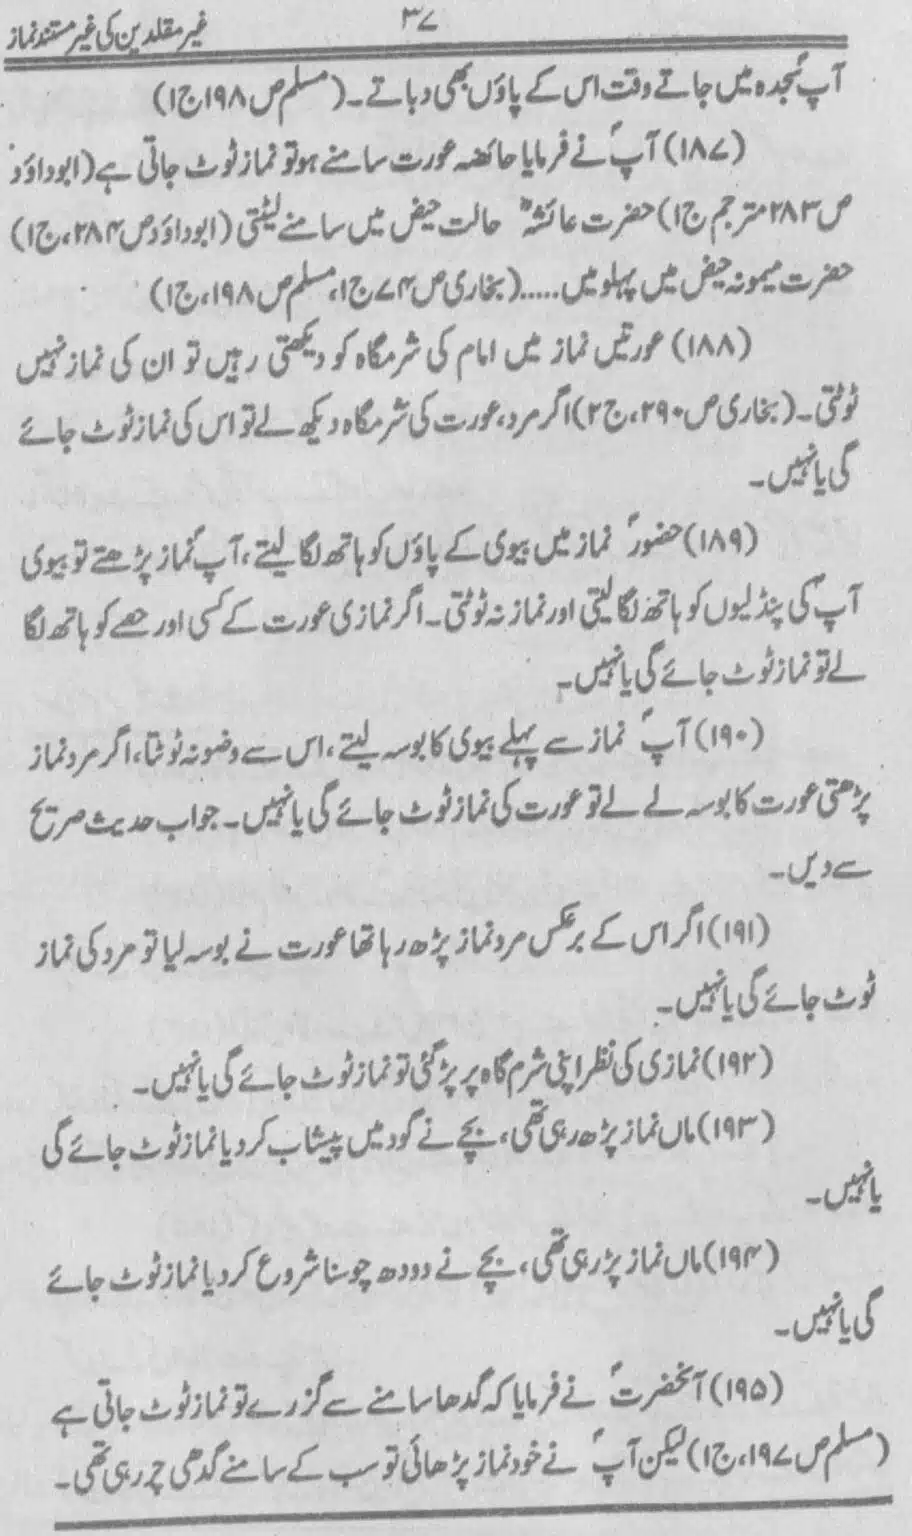 ۳۷
غیر مقلدین کی غیر مستند نماز
آپؐ سجدہ میں جاتے وقت اس کے پاؤں بھی دباتے۔ (مسلم ص ۱۹۸ ج ۱)
(۱۸۷) آپؐ نے فرمایا حائضہ عورت سامنے ہو تو نماز ٹوٹ جاتی ہے (ابوداؤد
ص ۲۸۳ مترجم ج ۱) حضرت عائشہؓ حالت حیض میں سامنے لیٹتی (ابوداؤد ص ۲۸۴، ج ۱)
حضرت میمونہ حیض میں پہلو میں ..... (بخاری ص ۷۴ ج ۱، مسلم ص ۱۹۸، ج ۱)
(۱۸۸) عورتیں نماز میں امام کی شرمگاہ کو دیکھتی رہیں تو ان کی نماز نہیں
ٹوٹتی۔ (بخاری ص ۲۹۰، ج ۲) اگر مرد، عورت کی شرمگاہ دیکھ لے تو اس کی نماز ٹوٹ جائے
گی یا نہیں۔
(۱۸۹) حضورؐ نماز میں بیوی کے پاؤں کو ہاتھ لگا لیتے، آپؐ نماز پڑھتے تو بیوی
آپؐ کی پنڈلیوں کو ہاتھ لگا لیتی اور نماز نہ ٹوٹتی۔ اگر نمازی عورت کے کسی اور حصے کو ہاتھ لگا
لے تو نماز ٹوٹ جائے گی یا نہیں۔
(۱۹۰) آپؐ نماز سے پہلے بیوی کا بوسہ لیتے، اس سے وضو نہ ٹوٹتا، اگر مرد نماز
پڑھتی عورت کا بوسہ لے لے تو عورت کی نماز ٹوٹ جائے گی یا نہیں۔ جواب حدیث صریح
سے دیں۔
(۱۹۱) اگر اس کے برعکس مرد نماز پڑھ رہا تھا عورت نے بوسہ لیا تو مرد کی نماز
ٹوٹ جائے گی یا نہیں۔
(۱۹۲) نمازی کی نظر اپنی شرم گاہ پر پڑ گئی تو نماز ٹوٹ جائے گی یا نہیں۔
(۱۹۳) ماں نماز پڑھ رہی تھی، بچے نے گود میں پیشاب کر دیا نماز ٹوٹ جائے گی
یا نہیں۔
(۱۹۴) ماں نماز پڑ رہی تھی، بچے نے دودھ چوسنا شروع کر دیا نماز ٹوٹ جائے
گی یا نہیں۔
(۱۹۵) آنحضرتؐ نے فرمایا کہ گدھا سامنے سے گزرے تو نماز ٹوٹ جاتی ہے
(مسلم ص ۱۹۷، ج ۱) لیکن آپؐ نے خود نماز پڑھائی تو سب کے سامنے گدھی چر رہی تھی۔